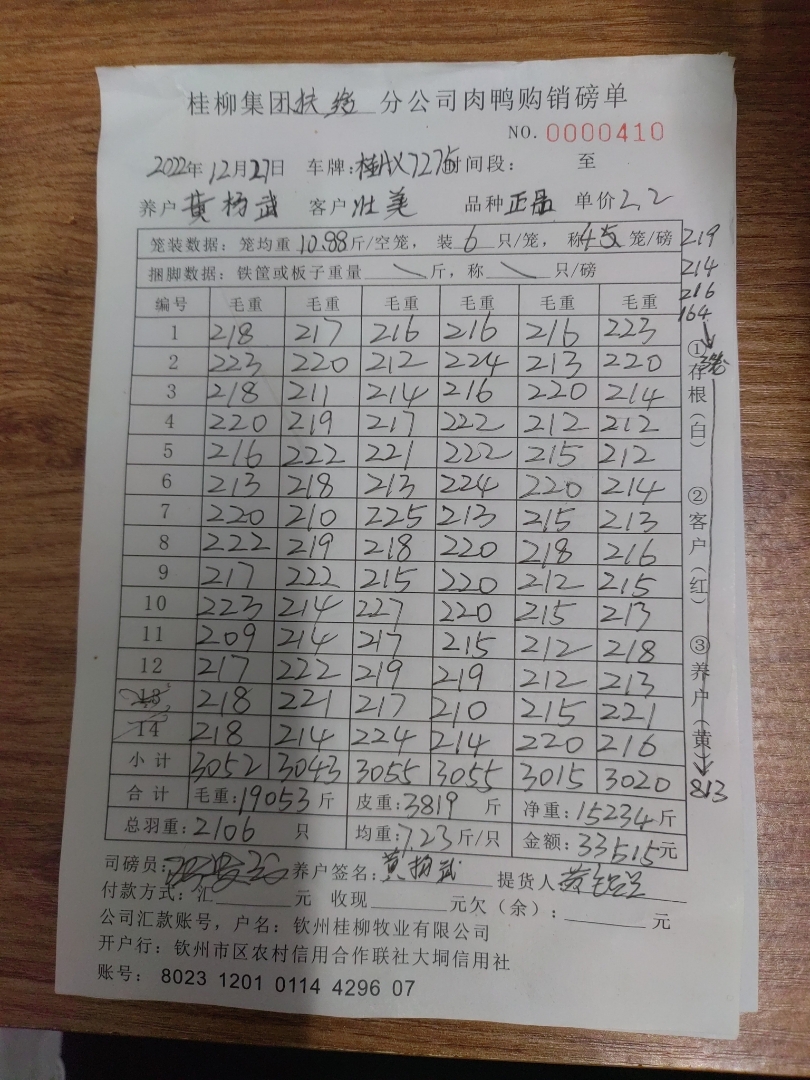 桂柳集团扶绥分公司肉鸭购销磅单
NO. 0000410
2022年12月27日 车牌: 7275时间段: 至
养户黄杨武 客户壮美 品种正品 单价2.2
笼装数据: 笼均重10.88斤/空笼, 装6只/笼, 称 笼/磅 219
捆脚数据: 铁筐或板子重量\斤, 称\只/磅 214
216
编号 毛重 毛重 毛重 毛重 毛重 毛重 164
1 218 217 216 216 216 223
2 223 220 212 224 213 220
3 218 211 214 216 220 214
4 220 219 217 222 212 212
5 216 222 221 222 215 212
6 213 218 213 224 220 214
7 220 210 225 213 215 213
8 222 219 218 220 218 216
9 217 222 215 220 212 215
10 223 214 227 220 215 213
11 209 214 217 215 212 218
12 217 222 219 219 212 213
13 218 221 217 210 215 221
14 218 214 224 214 220 216
小计 3052 3043 3055 3055 3015 3020
813
合计 毛重:19053斤 皮重:3819斤 净重:15234斤
总羽重:2106只 均重:7.23斤/只 金额:33515元
司磅员: 养户签名:黄杨武 提货人
付款方式: 汇元 收现元欠(余): 元
公司汇款账号, 户名: 钦州桂柳牧业有限公司
开户行: 钦州市区农村信用合作联社大垌信用社
账号: 8023 1201 0114 4296 07
①存根(白) ②客户(红) ③养户(黄)